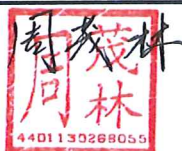 周茂林
周茂林
4401130268055